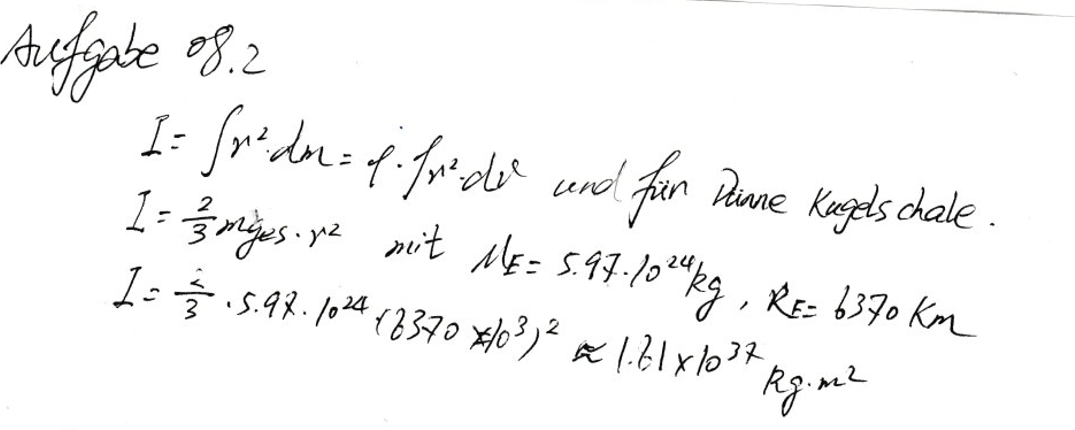 Aufgabe 08.2
I = ∫r²·dm = ρ·∫r²·dV und für Dünne Kugelschale.
I = 2/3 mges·r² mit ME = 5.97·10²⁴kg, RE = 6370 Km
I = 2/3 · 5.97·10²⁴ · (6370 × 10³)² ≈ 1.61 × 10³⁷ kg·m²